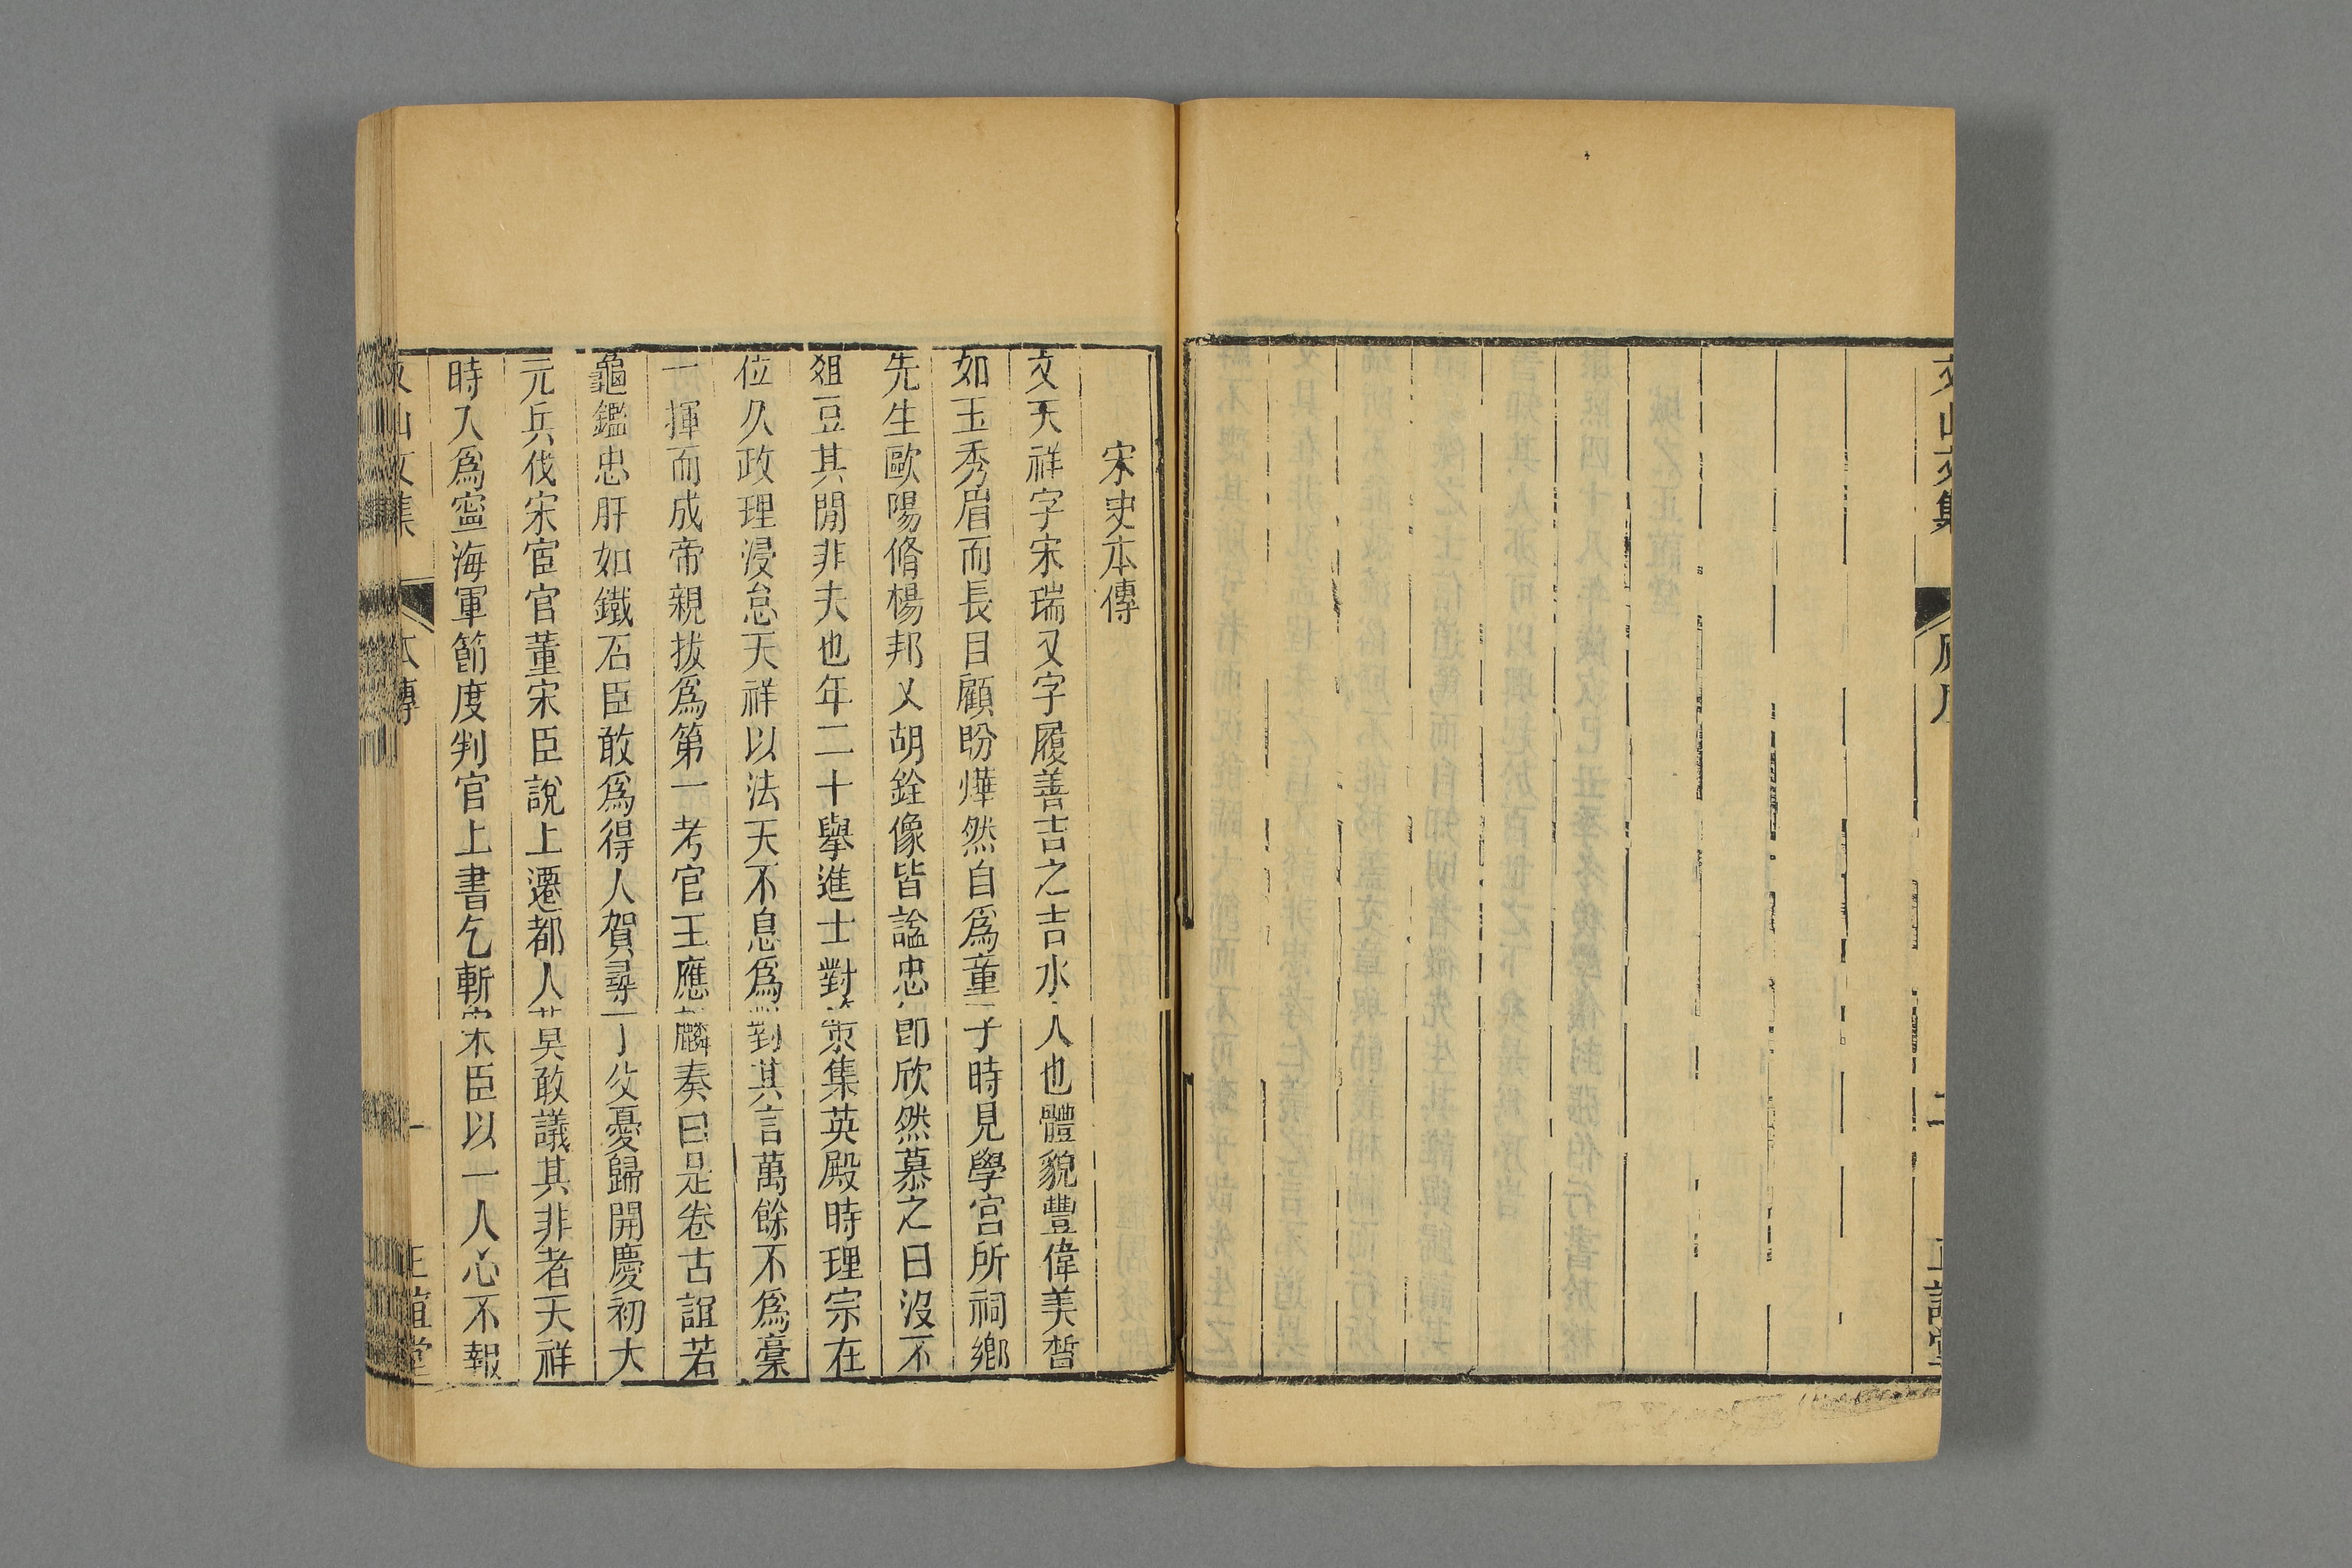 文山文集
原序
二
正誼堂
宋史本傳
文天祥字宋瑞又字履善吉之吉水人也體貌豐偉美晳
如玉秀眉而長目顧盼燁然自爲童子時見學宮所祠鄉
先生歐陽脩楊邦乂胡銓像皆諡忠節欣然慕之曰沒不
俎豆其閒非夫也年二十舉進士對策集英殿時理宗在
位久政理浸怠天祥以法天不息爲對其言萬餘不爲稾
一揮而成帝親拔爲第一考官王應麟奏曰是卷古誼若
龜鑑忠肝如鐵石臣敢爲得人賀尋丁父憂歸開慶初大
元兵伐宋宦官董宋臣說上遷都人莫敢議其非者天祥
時入爲寧海軍節度判官上書乞斬宋臣以一人心不報
文山文集
本傳
一
正誼堂